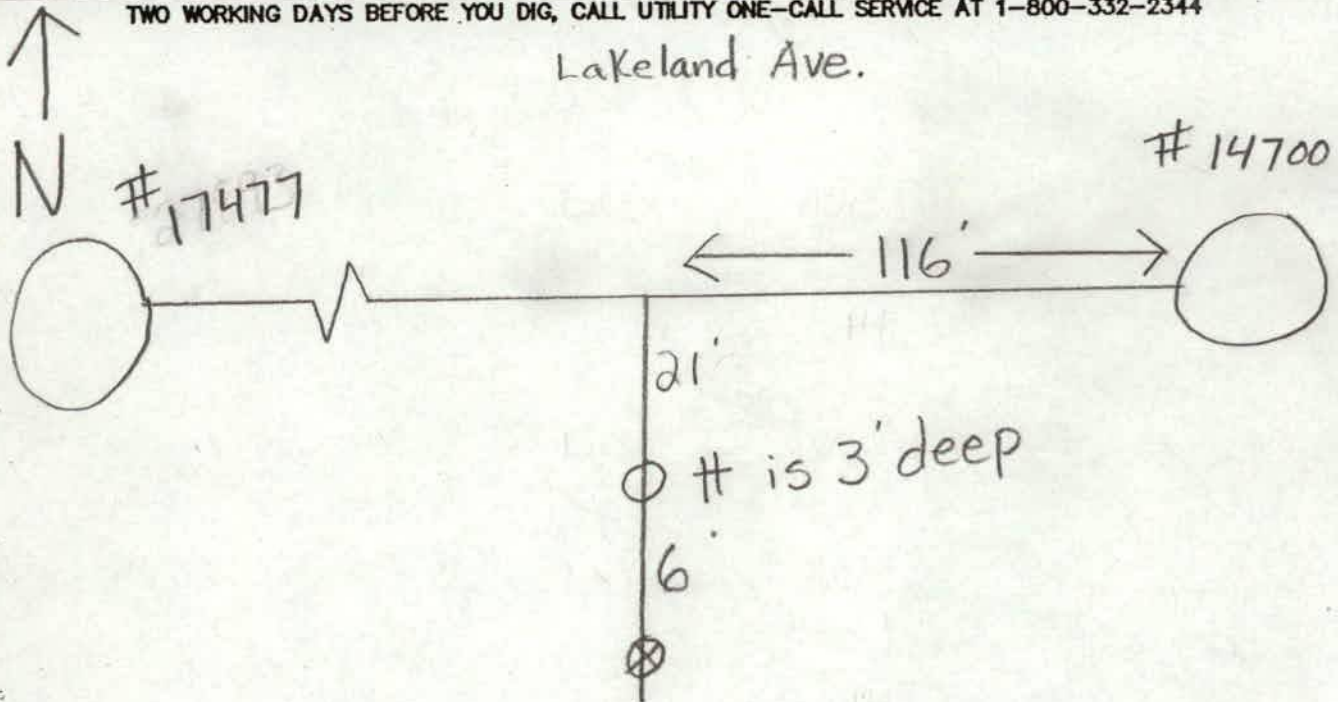 TWO WORKING DAYS BEFORE YOU DIG, CALL UTILITY ONE-CALL SERVICE AT 1-800-332-2344
Lakeland Ave.
N
# 17477
# 14700
116'
21'
# is 3' deep
6'